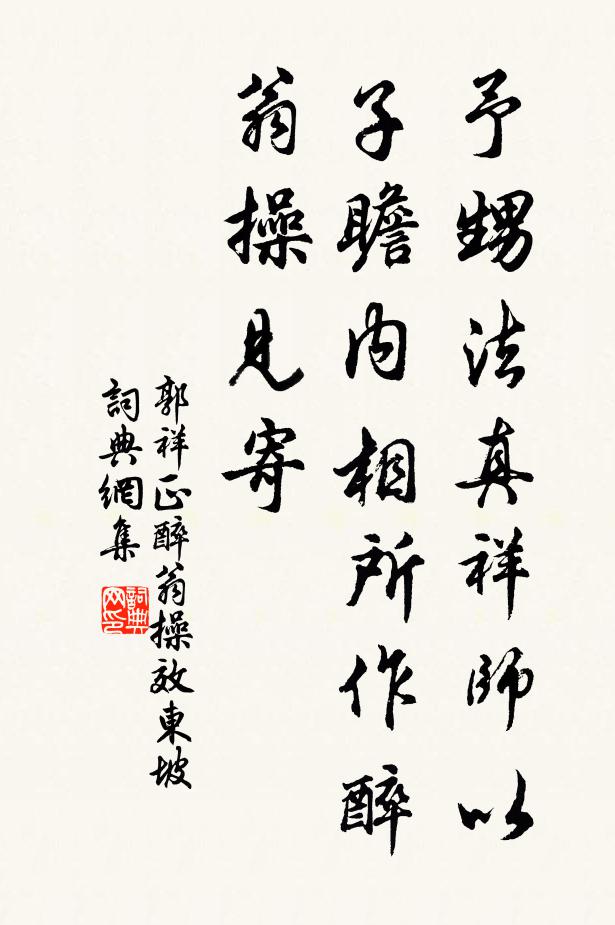 予甥法真祥師以
子瞻内相所作醉
翁操見寄
郭祥正醉翁操效東坡
詞典網集
詞典
网印